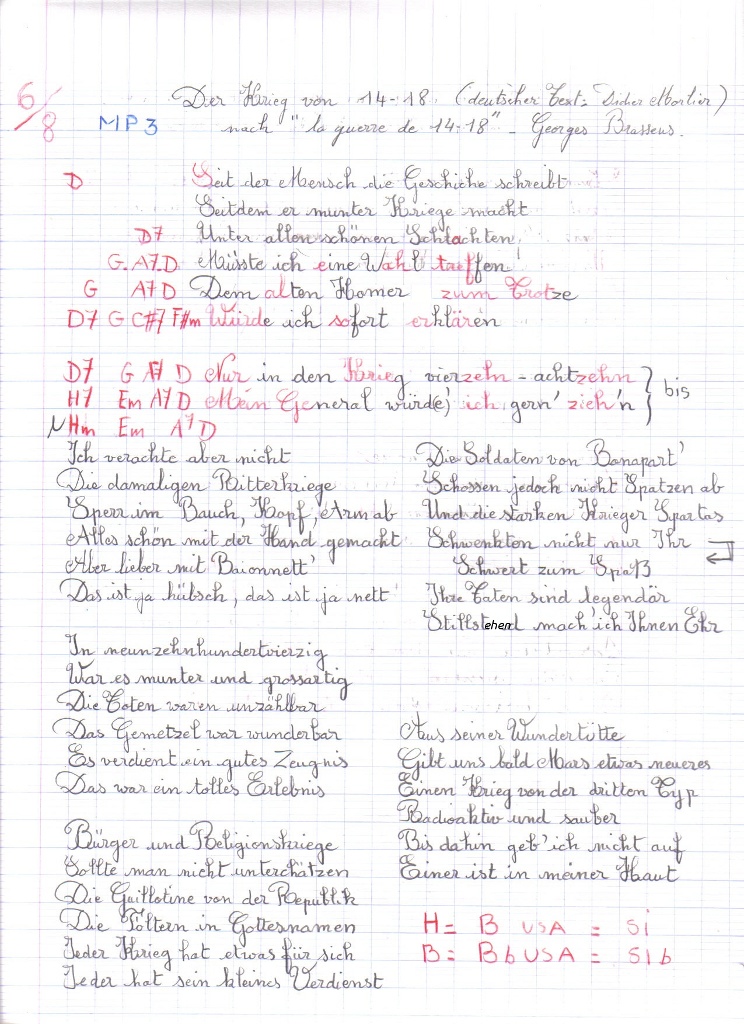 6/8
Der Krieg von 14-18 (deutscher Text: Didier Mortier)
MP3 nach "la guerre de 14-18" - Georges Brassens.
D Seit der Mensch die Geschichte schreibt
Seitdem er munter Kriege macht
D7 Unter allen schönen Schlachten
G. A7. D Müsste ich eine Wahl treffen
G A7 D Dem alten Homer zum Trotze
D7 G C#7 F#m Würde ich sofort erklären
D7 G A7 D Nur in den Krieg vierzehn - achtzehn } bis
H7 Em A7 D Mein General würd(e) ich gern' zieh'n
Hm Em A7 D
Ich verachte aber nicht
Die damaligen Ritterkriege
Sperr im Bauch, Kopf, Arm ab
Alles schön mit der Hand gemacht
Aber lieber mit Baionnett'
Das ist ja hübsch, das ist ja nett
In neunzehnhundertvierzig
War es munter und grossartig
Die Toten waren unzählbar
Das Gemetzel war wunderbar
Es verdient ein gutes Zeugnis
Das war ein tolles Erlebnis
Bürger und Religionskriege
Sollte man nicht unterchätzen
Die Guillotine von der Republik
Die Foltern in Gottesnamen
Jeder Krieg hat etwas für sich
Jeder hat sein kleines Verdienst
Die Soldaten von Banapart'
Schossen jedoch nicht Spatzen ab
Und die starken Krieger Spartas
Schwenkten nicht nur Ihr
Schwert zum Spaß
Ihre Taten sind legendär
Stillstehend mach' ich Ihnen Ehr
Aus seiner Wundertütte
Gibt uns bald Mars etwas neueres
Einen Krieg von der dritten Typ
Radioaktiv und sauber
Bis dahin geb' ich nicht auf
Einer ist in meiner Haut
H = B USA = Si
B = Bb USA = Sib